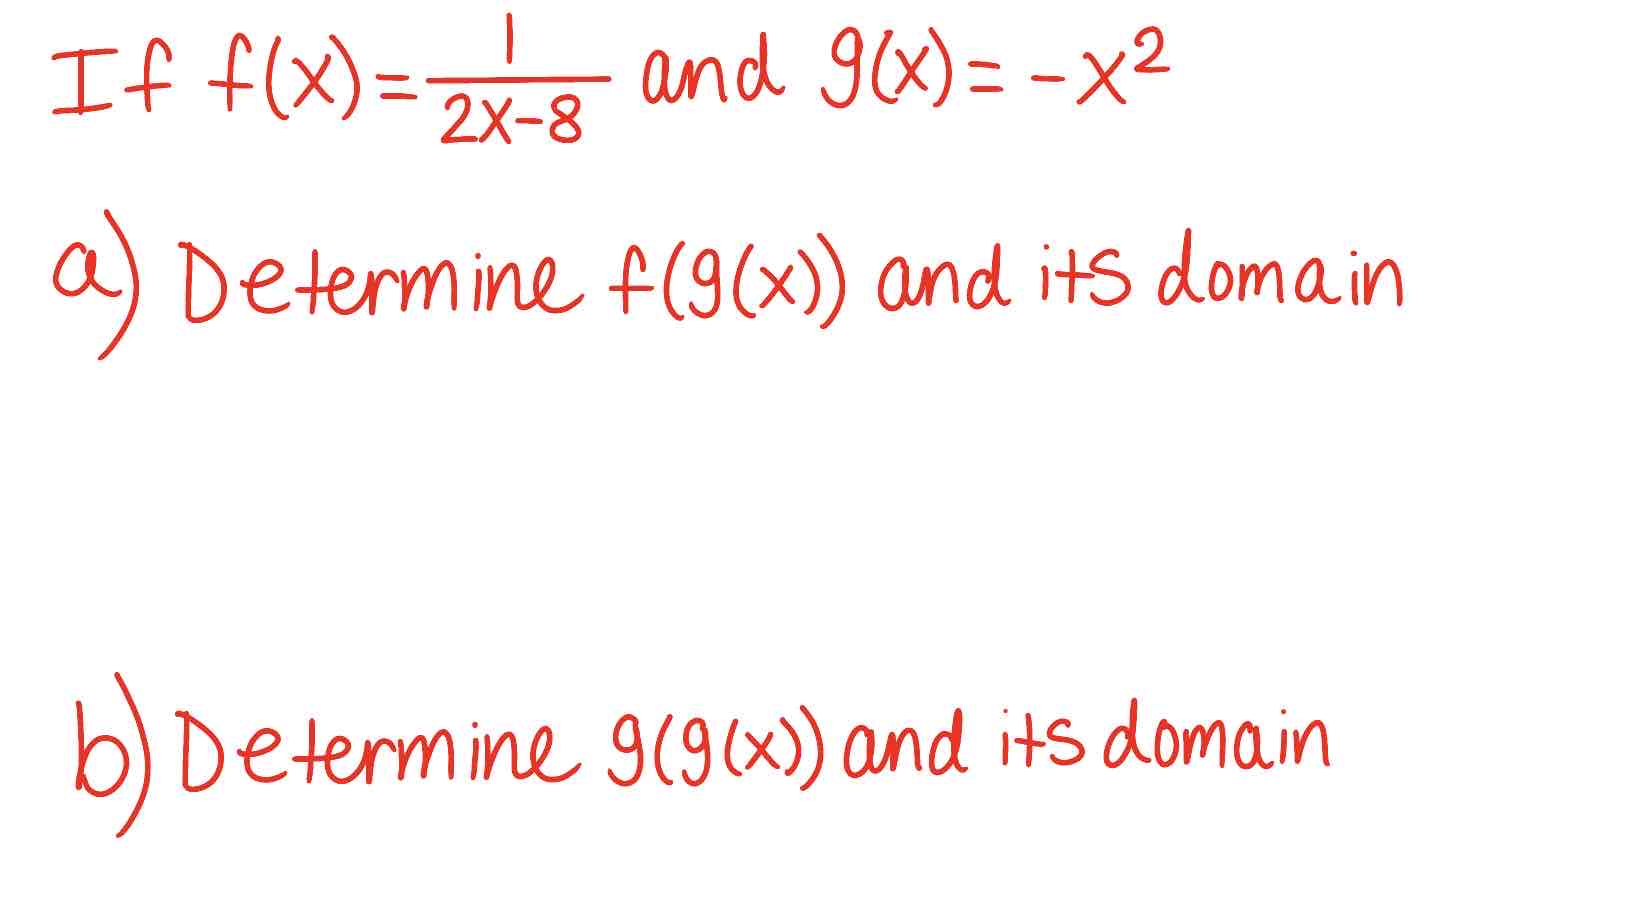 If f(x) = 1/(2x-8) and g(x) = -x²
a) Determine f(g(x)) and its domain
b) Determine g(g(x)) and its domain